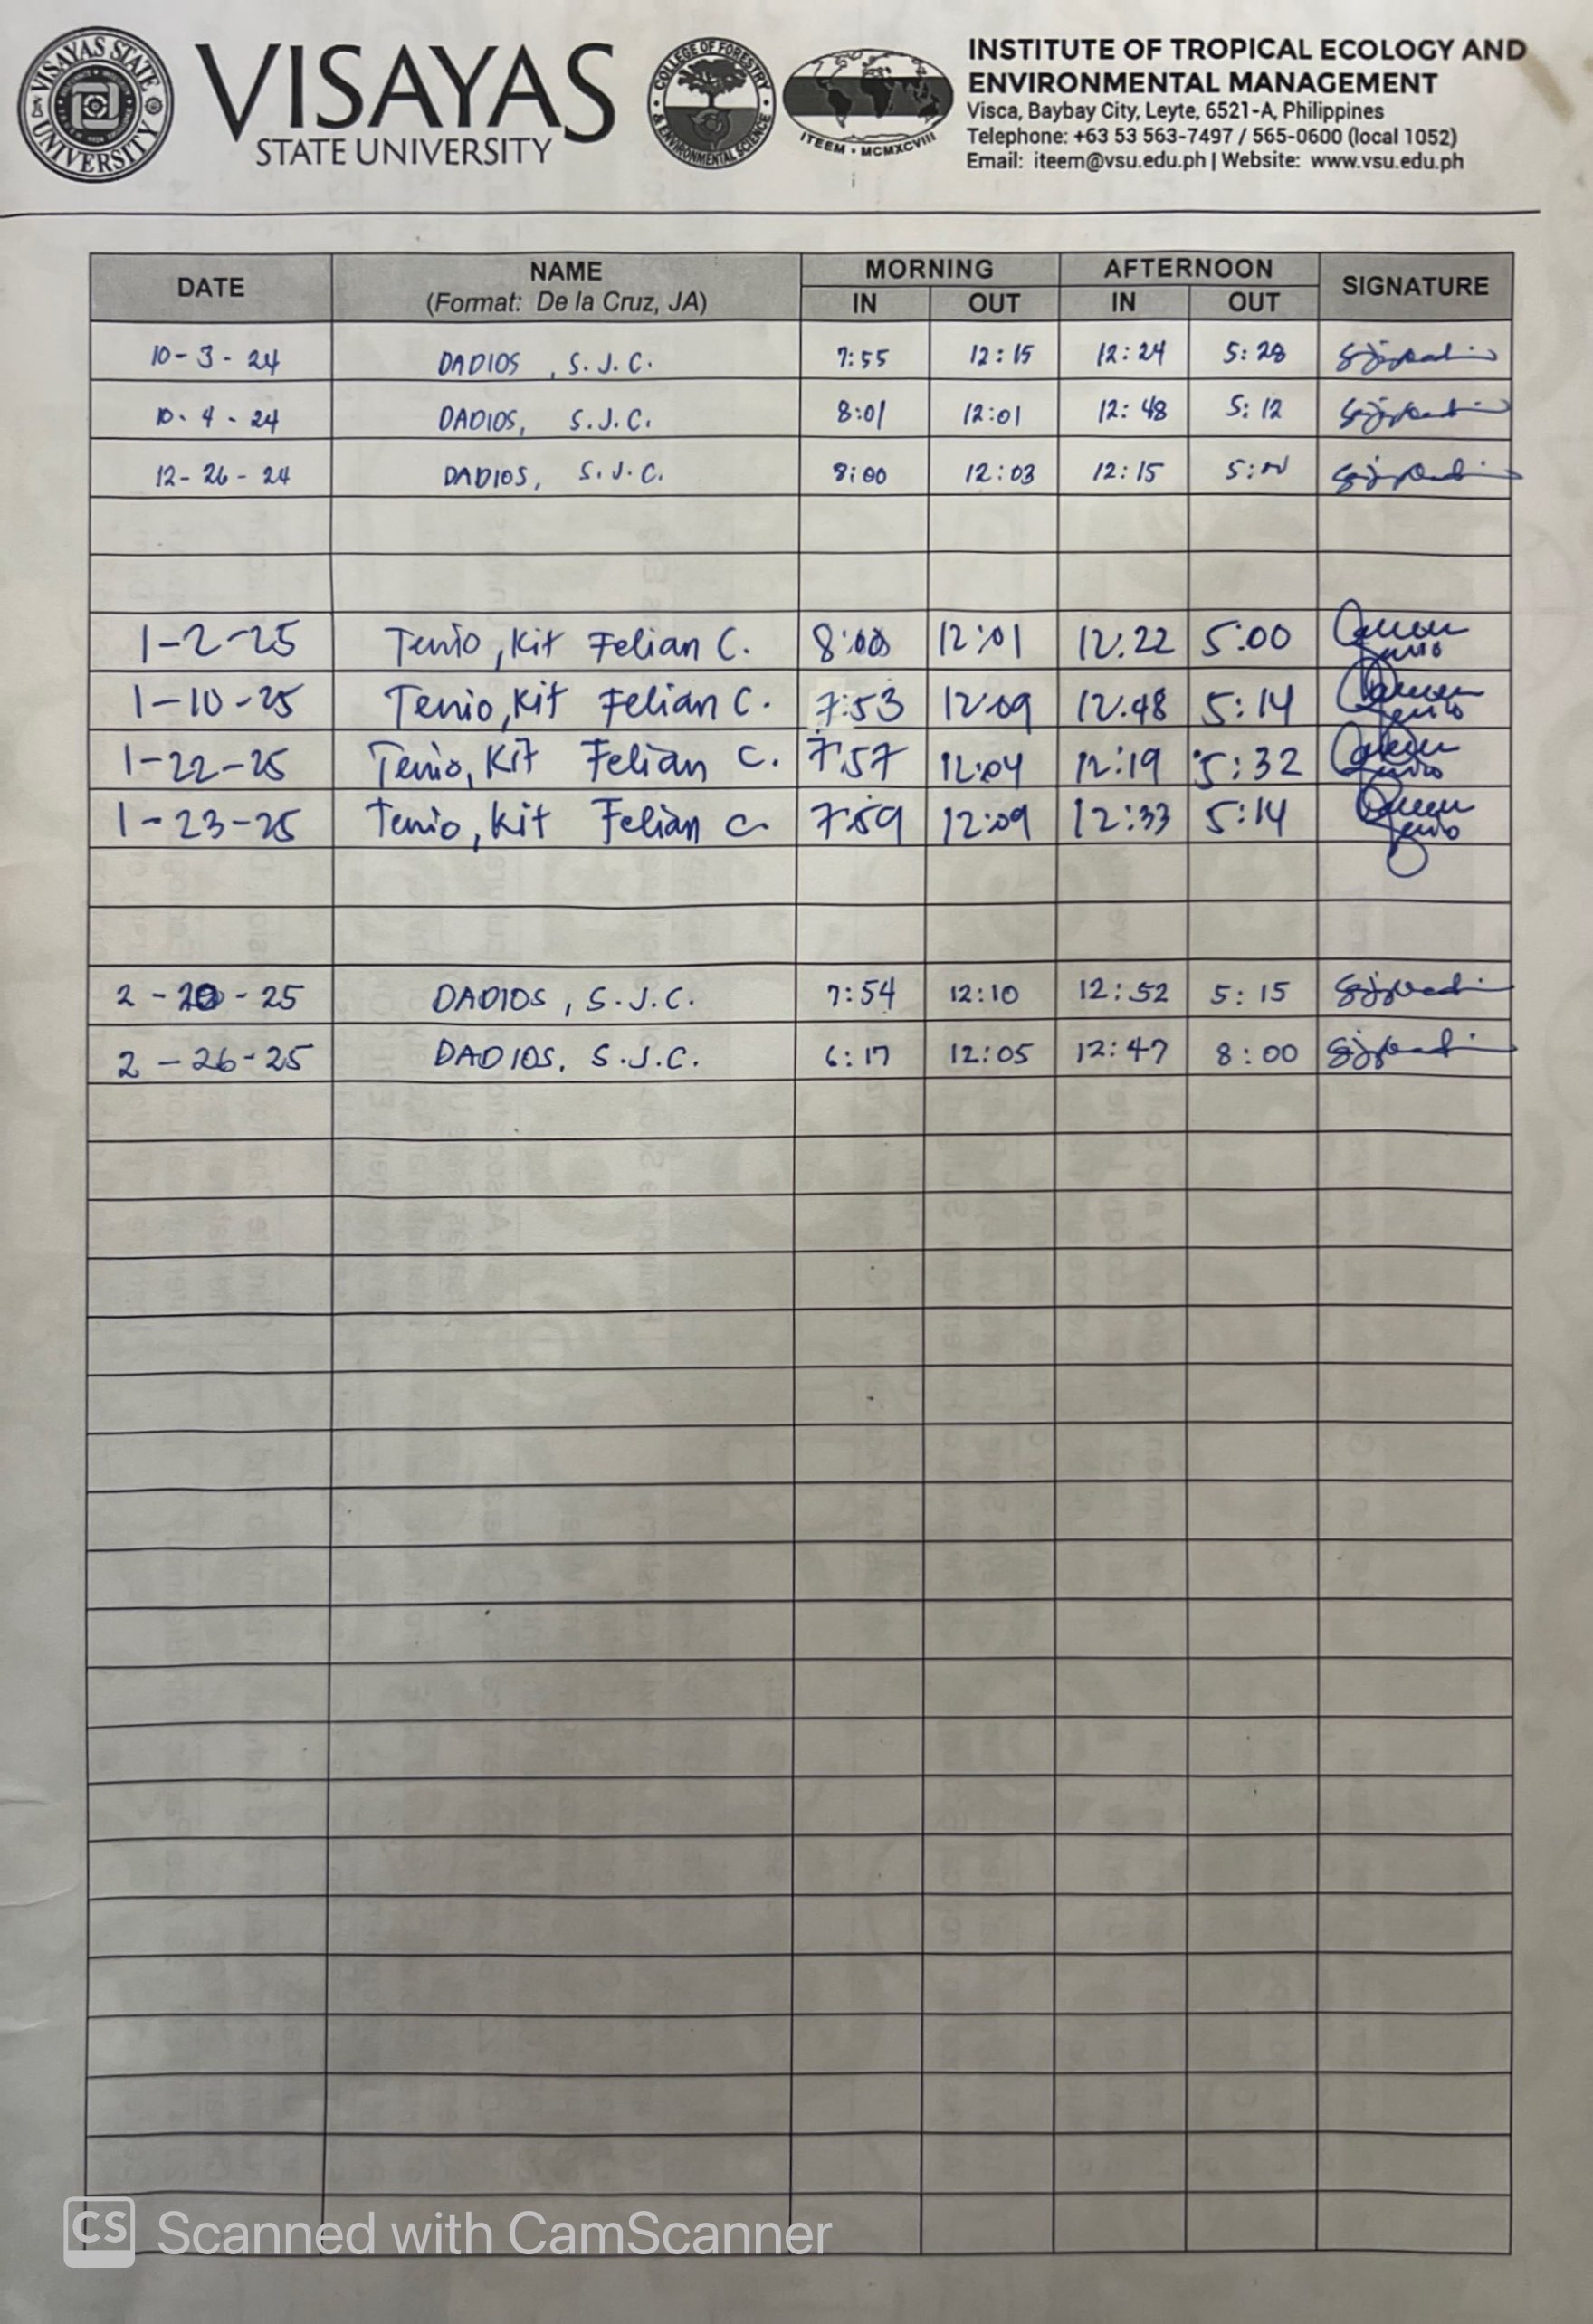 VISAYAS STATE UNIVERSITY
VISAYAS
STATE UNIVERSITY
COLLEGE OF FORESTRY & ENVIRONMENTAL SCIENCE
ITEEM • MCMXCVIII
INSTITUTE OF TROPICAL ECOLOGY AND
ENVIRONMENTAL MANAGEMENT
Visca, Baybay City, Leyte, 6521-A, Philippines
Telephone: +63 53 563-7497 / 565-0600 (local 1052)
Email: iteem@vsu.edu.ph | Website: www.vsu.edu.ph
DATE NAME MORNING AFTERNOON SIGNATURE
(Format: De la Cruz, JA) IN OUT IN OUT
10-3-24 DADIOS, S.J.C. 7:55 12:15 12:24 5:28
10-4-24 DADIOS, S.J.C. 8:01 12:01 12:48 5:12
12-26-24 DADIOS, S.J.C. 8:00 12:03 12:15
1-2-25 Tenio, Kit Felian C. 8:00 12:01 12:22 5:00
1-10-25 Tenio, Kit Felian C. 7:53 12:09 12:48 5:14
1-22-25 Tenio, Kit Felian C. 7:57 12:04 12:19 5:32
1-23-25 Tenio, Kit Felian C. 7:59 12:09 12:33 5:14
2-20-25 DADIOS, S.J.C. 7:54 12:10 12:52 5:15
2-26-25 DADIOS, S.J.C. 6:17 12:05 12:47 8:00
CS Scanned with CamScanner